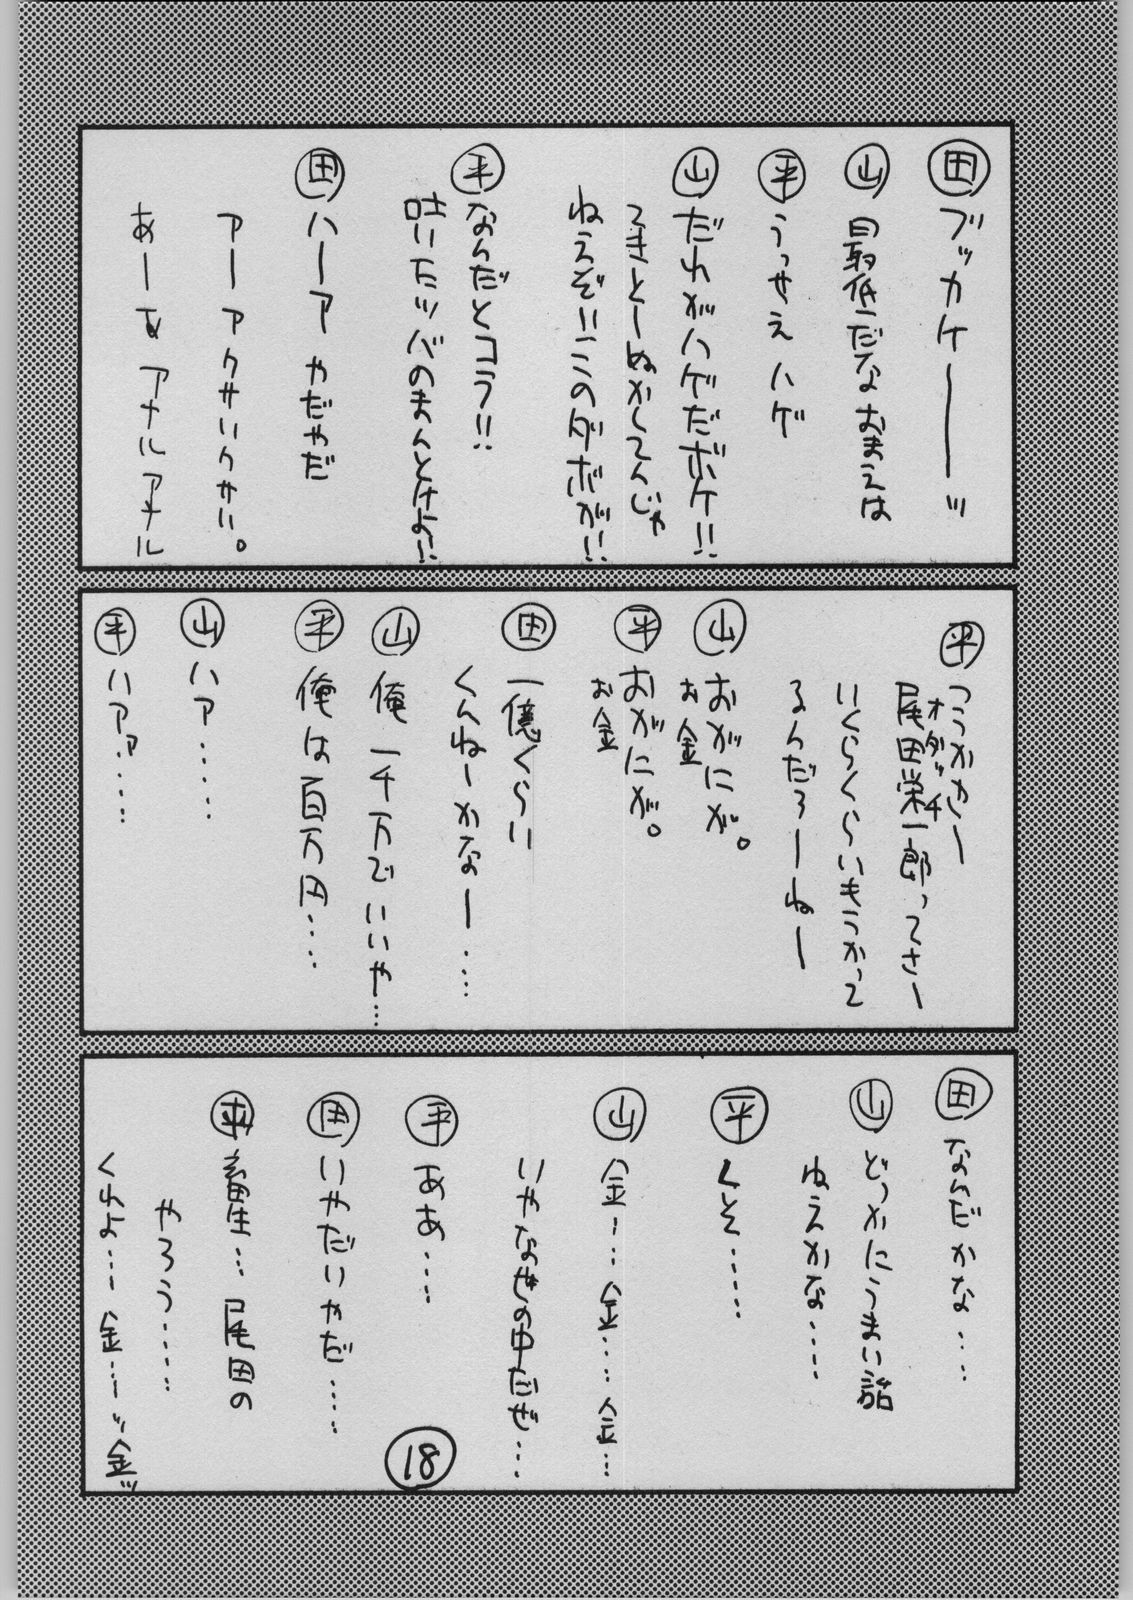 田 ブッカケーーッ
山 最低だなおまえは
平 うっせえハゲ
山 だれがハゲだボケ!!
てきとーぬかしてんじゃ
ねえぞ!!このダボが!!
平 なんだとコラ!!
吐いたツバのまんとけよ!!
田 ハーア やだやだ
アー アクサイクサい。
あーあ アナルアナル
平 つうかさー
尾田栄一郎ってさー
オダッチ
いくらくらいもうかって
るんだろーねー
山 おがにが。
お金
平 おがにが。
お金
田 一億くらい
くんねーかなー……
山 俺一千万でいいや…
平 俺は百万円……
山 ハァ……
平 ハァァ……
田 なんだかな……
山 どっかにうまい話
ねえかな……
平 くそ……
山 金……金……金…
いやなせの中だぜ…
平 ああ……
田 いやだいやだ……
平 畜生… 尾田の
やろう……
くんよ… 金…ーッ金ッ
18